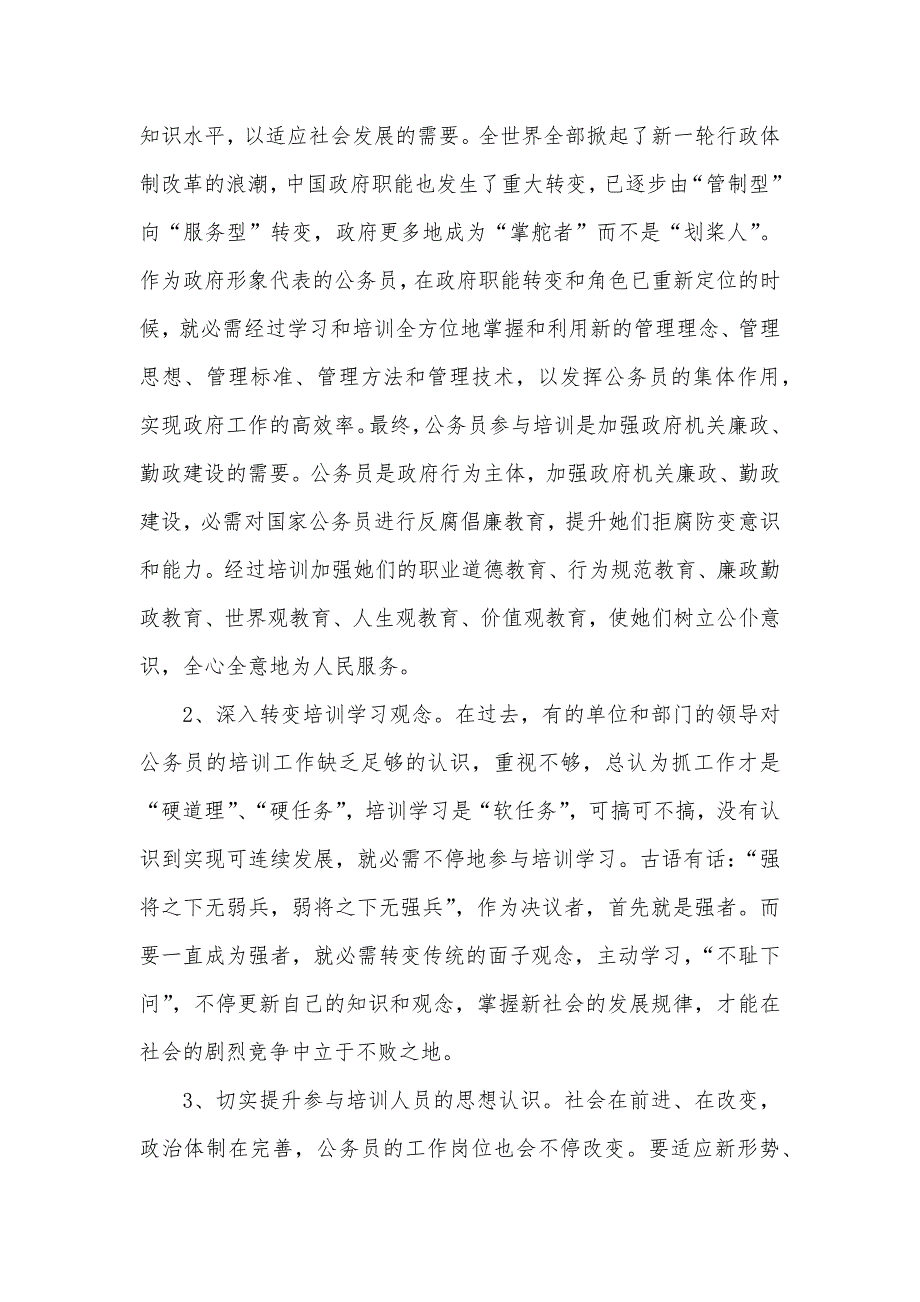 知识水平，以适应社会发展的需要。全世界全部掀起了新一轮行政体
制改革的浪潮，中国政府职能也发生了重大转变，已逐步由“管制型”
向“服务型”转变，政府更多地成为“掌舵者”而不是“划桨人”。
作为政府形象代表的公务员，在政府职能转变和角色已重新定位的时
候，就必需经过学习和培训全方位地掌握和利用新的管理理念、管理
思想、管理标准、管理方法和管理技术，以发挥公务员的集体作用，
实现政府工作的高效率。最终，公务员参与培训是加强政府机关廉政、
勤政建设的需要。公务员是政府行为主体，加强政府机关廉政、勤政
建设，必需对国家公务员进行反腐倡廉教育，提升她们拒腐防变意识
和能力。经过培训加强她们的职业道德教育、行为规范教育、廉政勤
政教育、世界观教育、人生观教育、价值观教育，使她们树立公仆意
识，全心全意地为人民服务。
2、深入转变培训学习观念。在过去，有的单位和部门的领导对
公务员的培训工作缺乏足够的认识，重视不够，总认为抓工作才是
“硬道理”、“硬任务”，培训学习是“软任务”，可搞可不搞，没有认
识到实现可连续发展，就必需不停地参与培训学习。古语有话：“强
将之下无弱兵，弱将之下无强兵”，作为决议者，首先就是强者。而
要一直成为强者，就必需转变传统的面子观念，主动学习，“不耻下
问”，不停更新自己的知识和观念，掌握新社会的发展规律，才能在
社会的剧烈竞争中立于不败之地。
3、切实提升参与培训人员的思想认识。社会在前进、在改变，
政治体制在完善，公务员的工作岗位也会不停改变。要适应新形势、